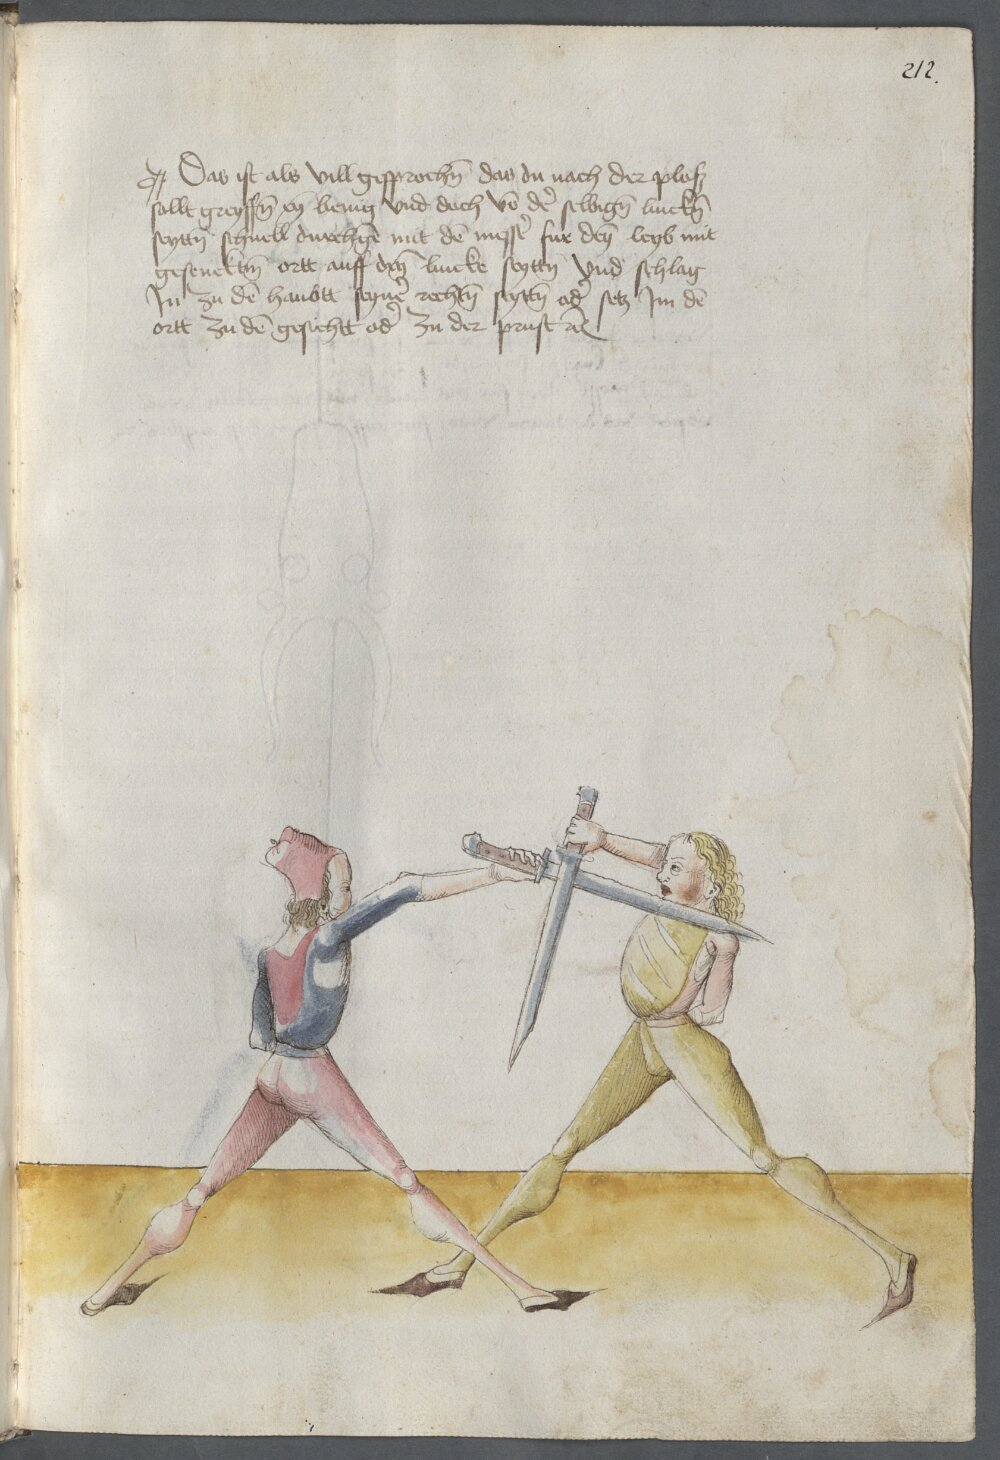 212.
Das ist als vill gesprochñ das du nach der ploß
sollt greyffñ eyñ wenig vnd doch vō der̄ selbigñ linckñ
seyttñ schnell durchgē mit dē messer̄ fur deyñ leyb mit
gesencktñ ortt auff deyñ lincke seyttñ vnd schlag
In zu dē haubtt seyner̄ rechtñ seyttñ oder̄ setz Im dē
ortt zu dē gesichtt oder̄ zu der prust rc